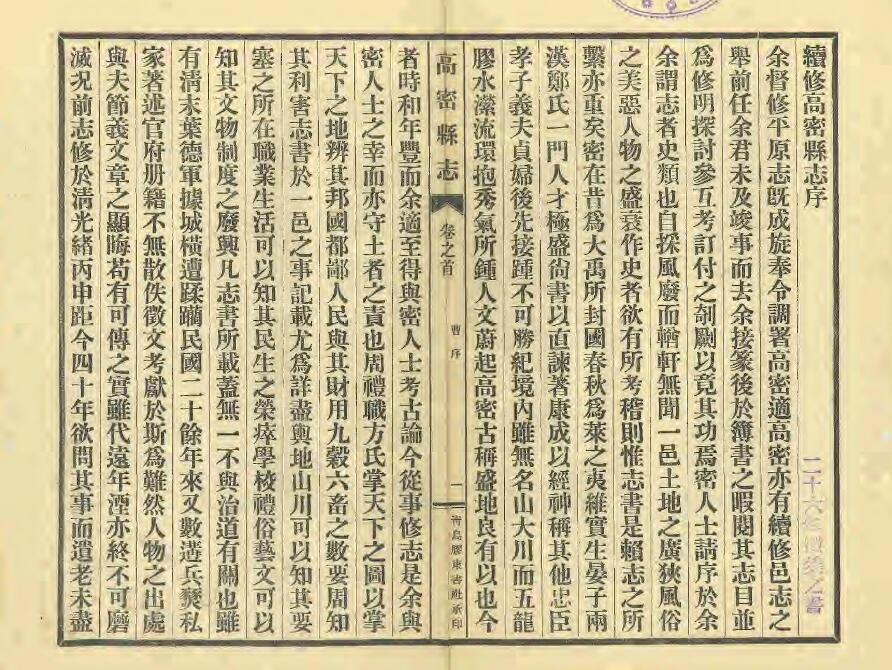 續修高密縣志序
余督修平原志旣成旋奉令調署高密適高密亦有續修邑志之
舉前任余君未及竣事而去余接篆後於簿書之暇閱其志目並
爲修明探討參互考訂付之剞劂以竟其功焉密人士請序於余
余謂志者史類也自採風廢而輶軒無聞一邑土地之廣狹風俗
之美惡人物之盛衰作史者欲有所考稽則惟志書是賴志之所
繫亦重矣密在昔爲大禹所封國春秋爲萊之夷維實生晏子兩
漢鄭氏一門人才極盛尙書以直諫著康成以經神稱其他忠臣
孝子義夫貞婦後先接踵不可勝紀境內雖無名山大川而五龍
膠水瀠流環抱秀氣所鍾人文蔚起高密古稱盛地良有以也今
高密縣志
卷之首
曹序
一
靑島膠東書社承印
者時和年豐而余適至得與密人士考古論今從事修志是余與
密人士之幸而亦守土者之責也周禮職方氏掌天下之圖以掌
天下之地辨其邦國都鄙人民與其財用九穀六畜之數要周知
其利害志書於一邑之事記載尤爲詳盡輿地山川可以知其要
塞之所在職業生活可以知其民生之榮瘁學校禮俗藝文可以
知其文物制度之廢興凡志書所載蓋無一不與治道有關也雖
有淸末葉德軍據城橫遭蹂躪民國二十餘年來又數遘兵燹私
家著述官府册籍不無散佚徵文考獻於斯爲難然人物之出處
與夫節義文章之顯晦苟有可傳之實雖代遠年湮亦終不可磨
滅況前志修於淸光緖丙申距今四十年欲問其事而遺老未盡